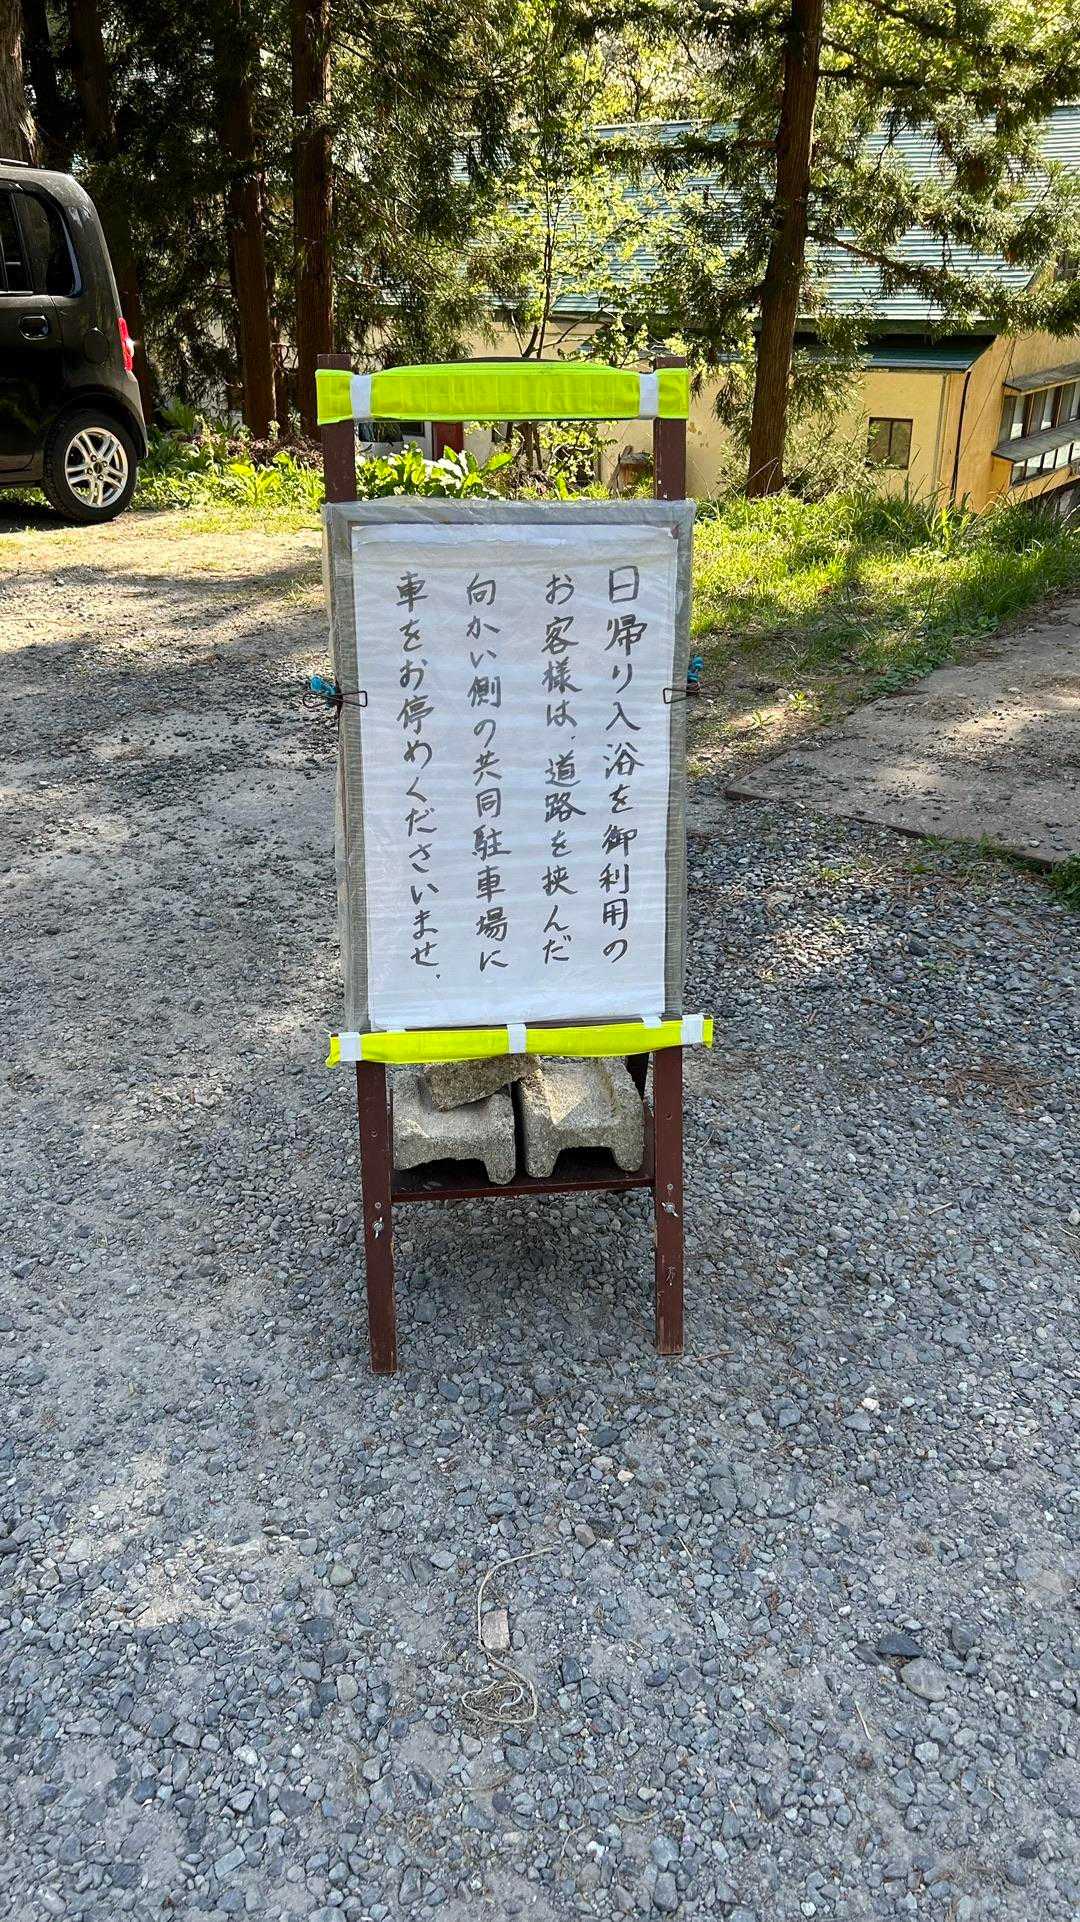 日帰り入浴を御利用の
お客様は、道路を挟んだ
向かい側の共同駐車場に
車をお停めくださいませ。